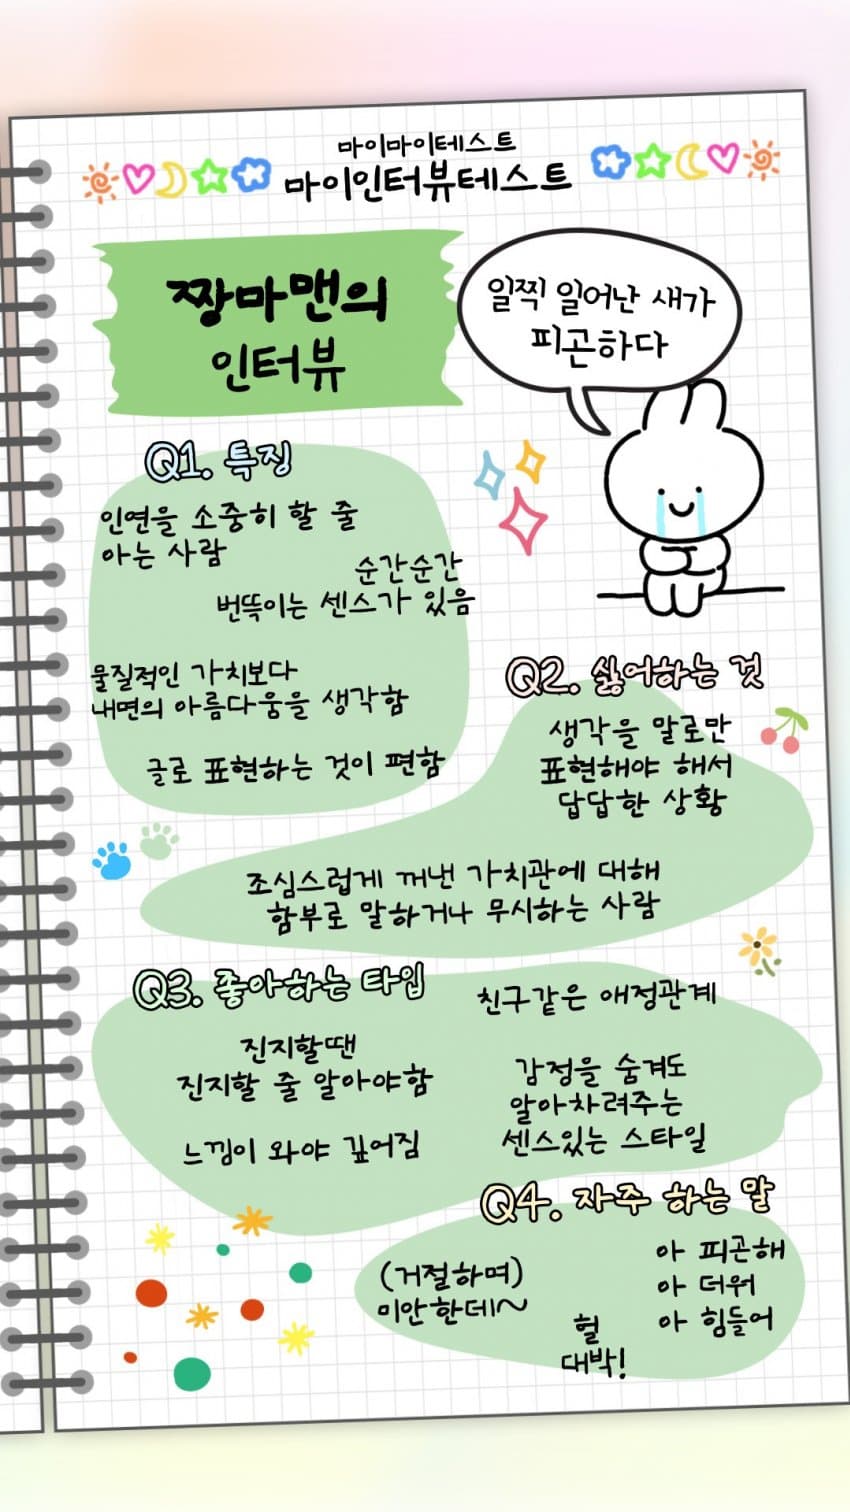 마이마이테스트
마이인터뷰테스트
짱마맨의
인터뷰
일찍 일어난 새가
피곤하다
Q1. 특징
인연을 소중히 할 줄
아는 사람
순간순간
번뜩이는 센스가 있음
물질적인 가치보다
내면의 아름다움을 생각함
글로 표현하는 것이 편함
Q2. 싫어하는 것
생각을 말로만
표현해야 해서
답답한 상황
조심스럽게 꺼낸 가치관에 대해
함부로 말하거나 무시하는 사람
Q3. 좋아하는 타입
친구같은 애정관계
진지할땐
진지할 줄 알아야함
감정을 숨겨도
알아차려주는
센스있는 스타일
느낌이 와야 깊어짐
Q4. 자주 하는 말
(거절하며)
미안한데~
아 피곤해
아 더워
아 힘들어
헐
대박!